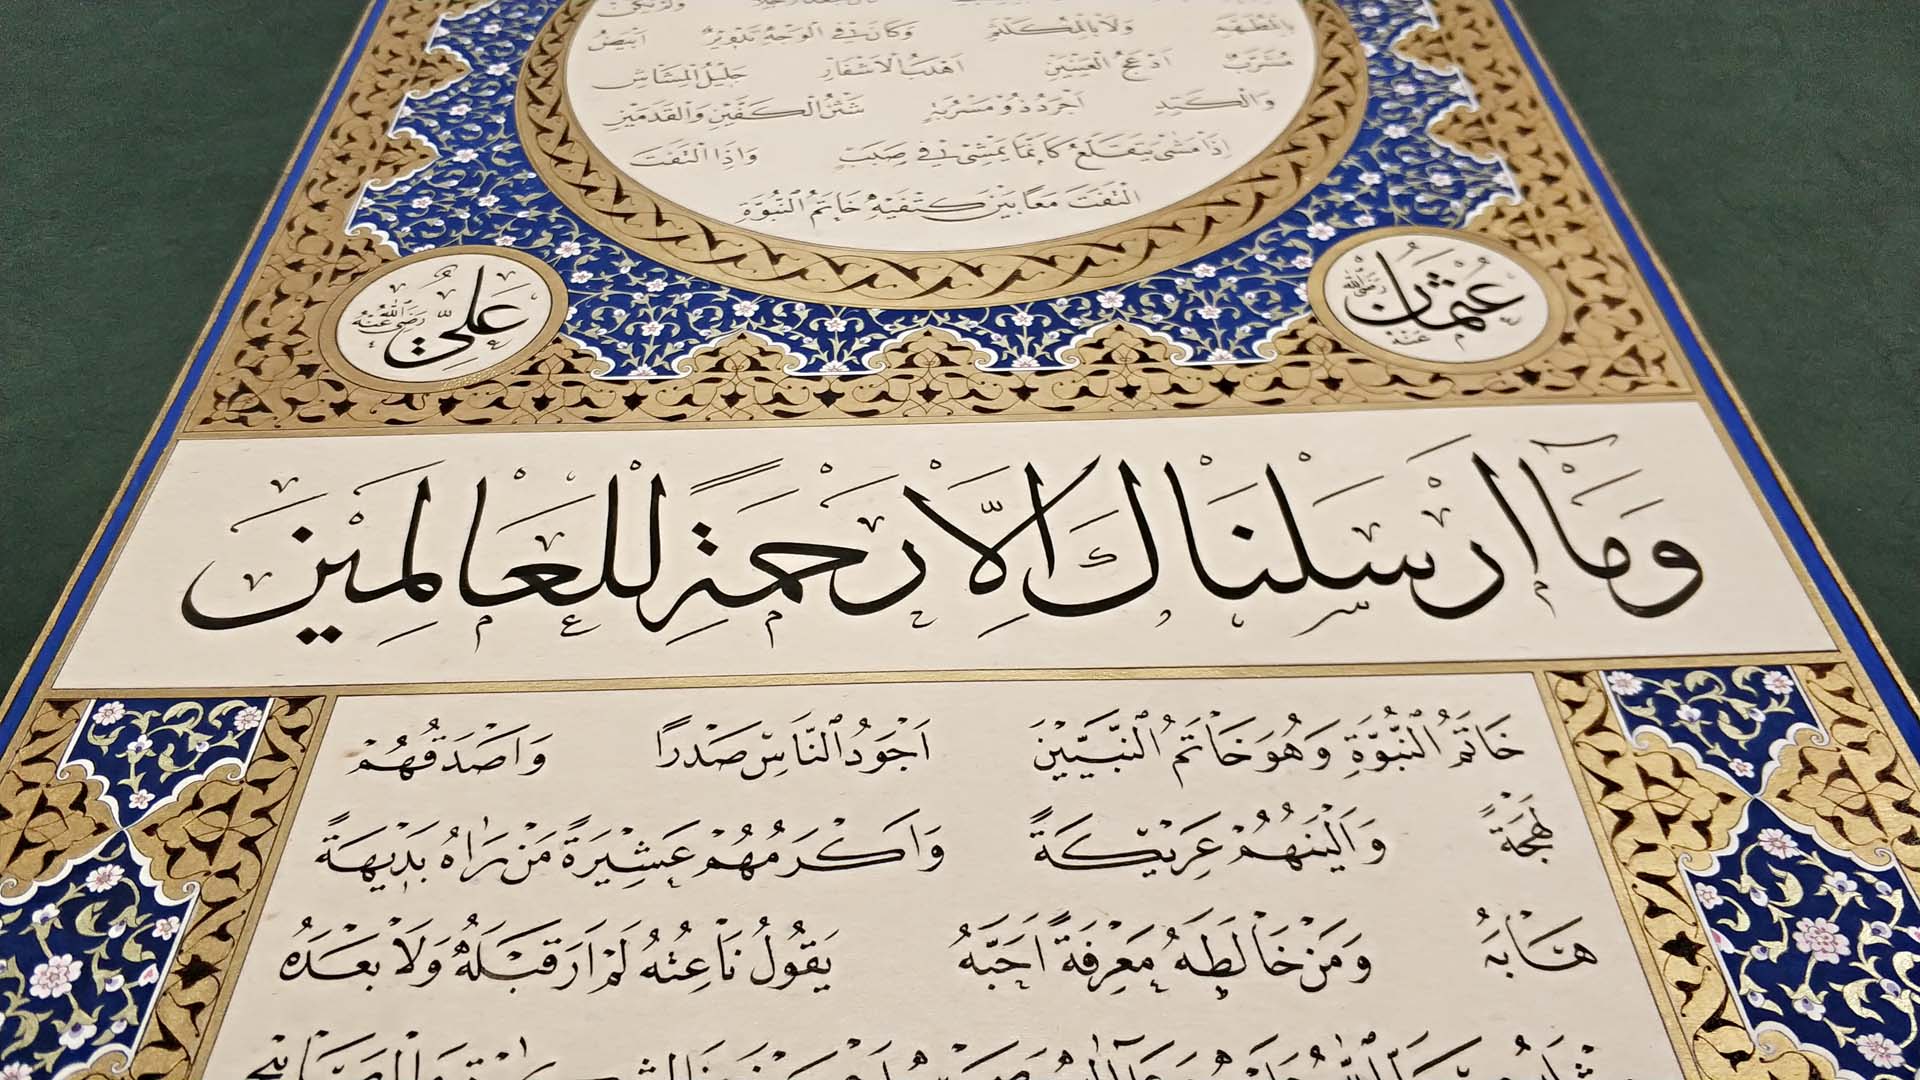 بالمطهم ولا بالمكلثم وكان في الوجه تدوير ابيض
مشرب ادعج العينين اهدب الاشفار جليل المشاش
والكتد اجرد ذو مسربة شثن الكفين والقدمين
اذا مشى يتقلع كانما يمشي في صبب واذا التفت
التفت معا بين كتفيه خاتم النبوة
عثمان رضي الله عنه
علي رضي الله عنه
وَمَآ اَرْسَلْنَاكَ اِلَّا رَحْمَةً لِلْعَالَمِينَ
خَاتَمُ النُّبُوَّةِ وَهُوَ خَاتَمُ النَّبِيِّينَ اَجْوَدُ النَّاسِ صَدْرًا وَاَصْدَقُهُمْ
لَهْجَةً وَاَلْيَنُهُمْ عَرِيكَةً وَاَكْرَمُهُمْ عَشِيرَةً مَنْ رَاٰهُ بَدِيهَةً
هَابَهُ وَمَنْ خَالَطَهُ مَعْرِفَةً اَحَبَّهُ يَقُولُ نَاعِتُهُ لَمْ اَرَ قَبْلَهُ وَلَا بَعْدَهُ